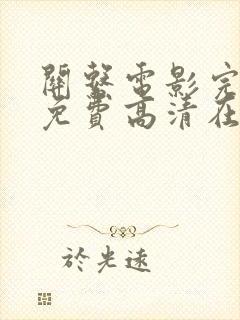 開發電影完
免費高清在
於光遠